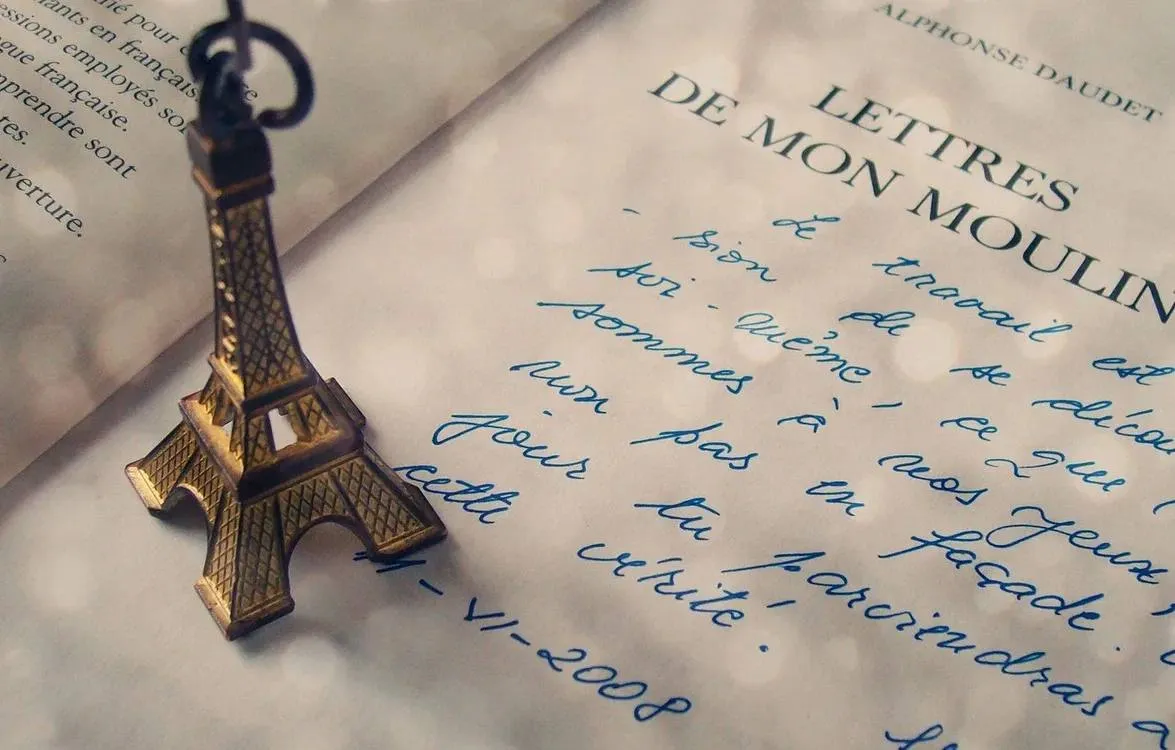 pour
en français
essions employés so
gue française.
mprendre sont
tes.
uverture.
ALPHONSE DAUDET
LETTRES
DE MON MOULIN
- Le travail est
sion de se décou
soi-même, ce que
sommes à nos yeux,
non pas en façade.
jour tu parviendras a
cette vérité.
-VI-2008